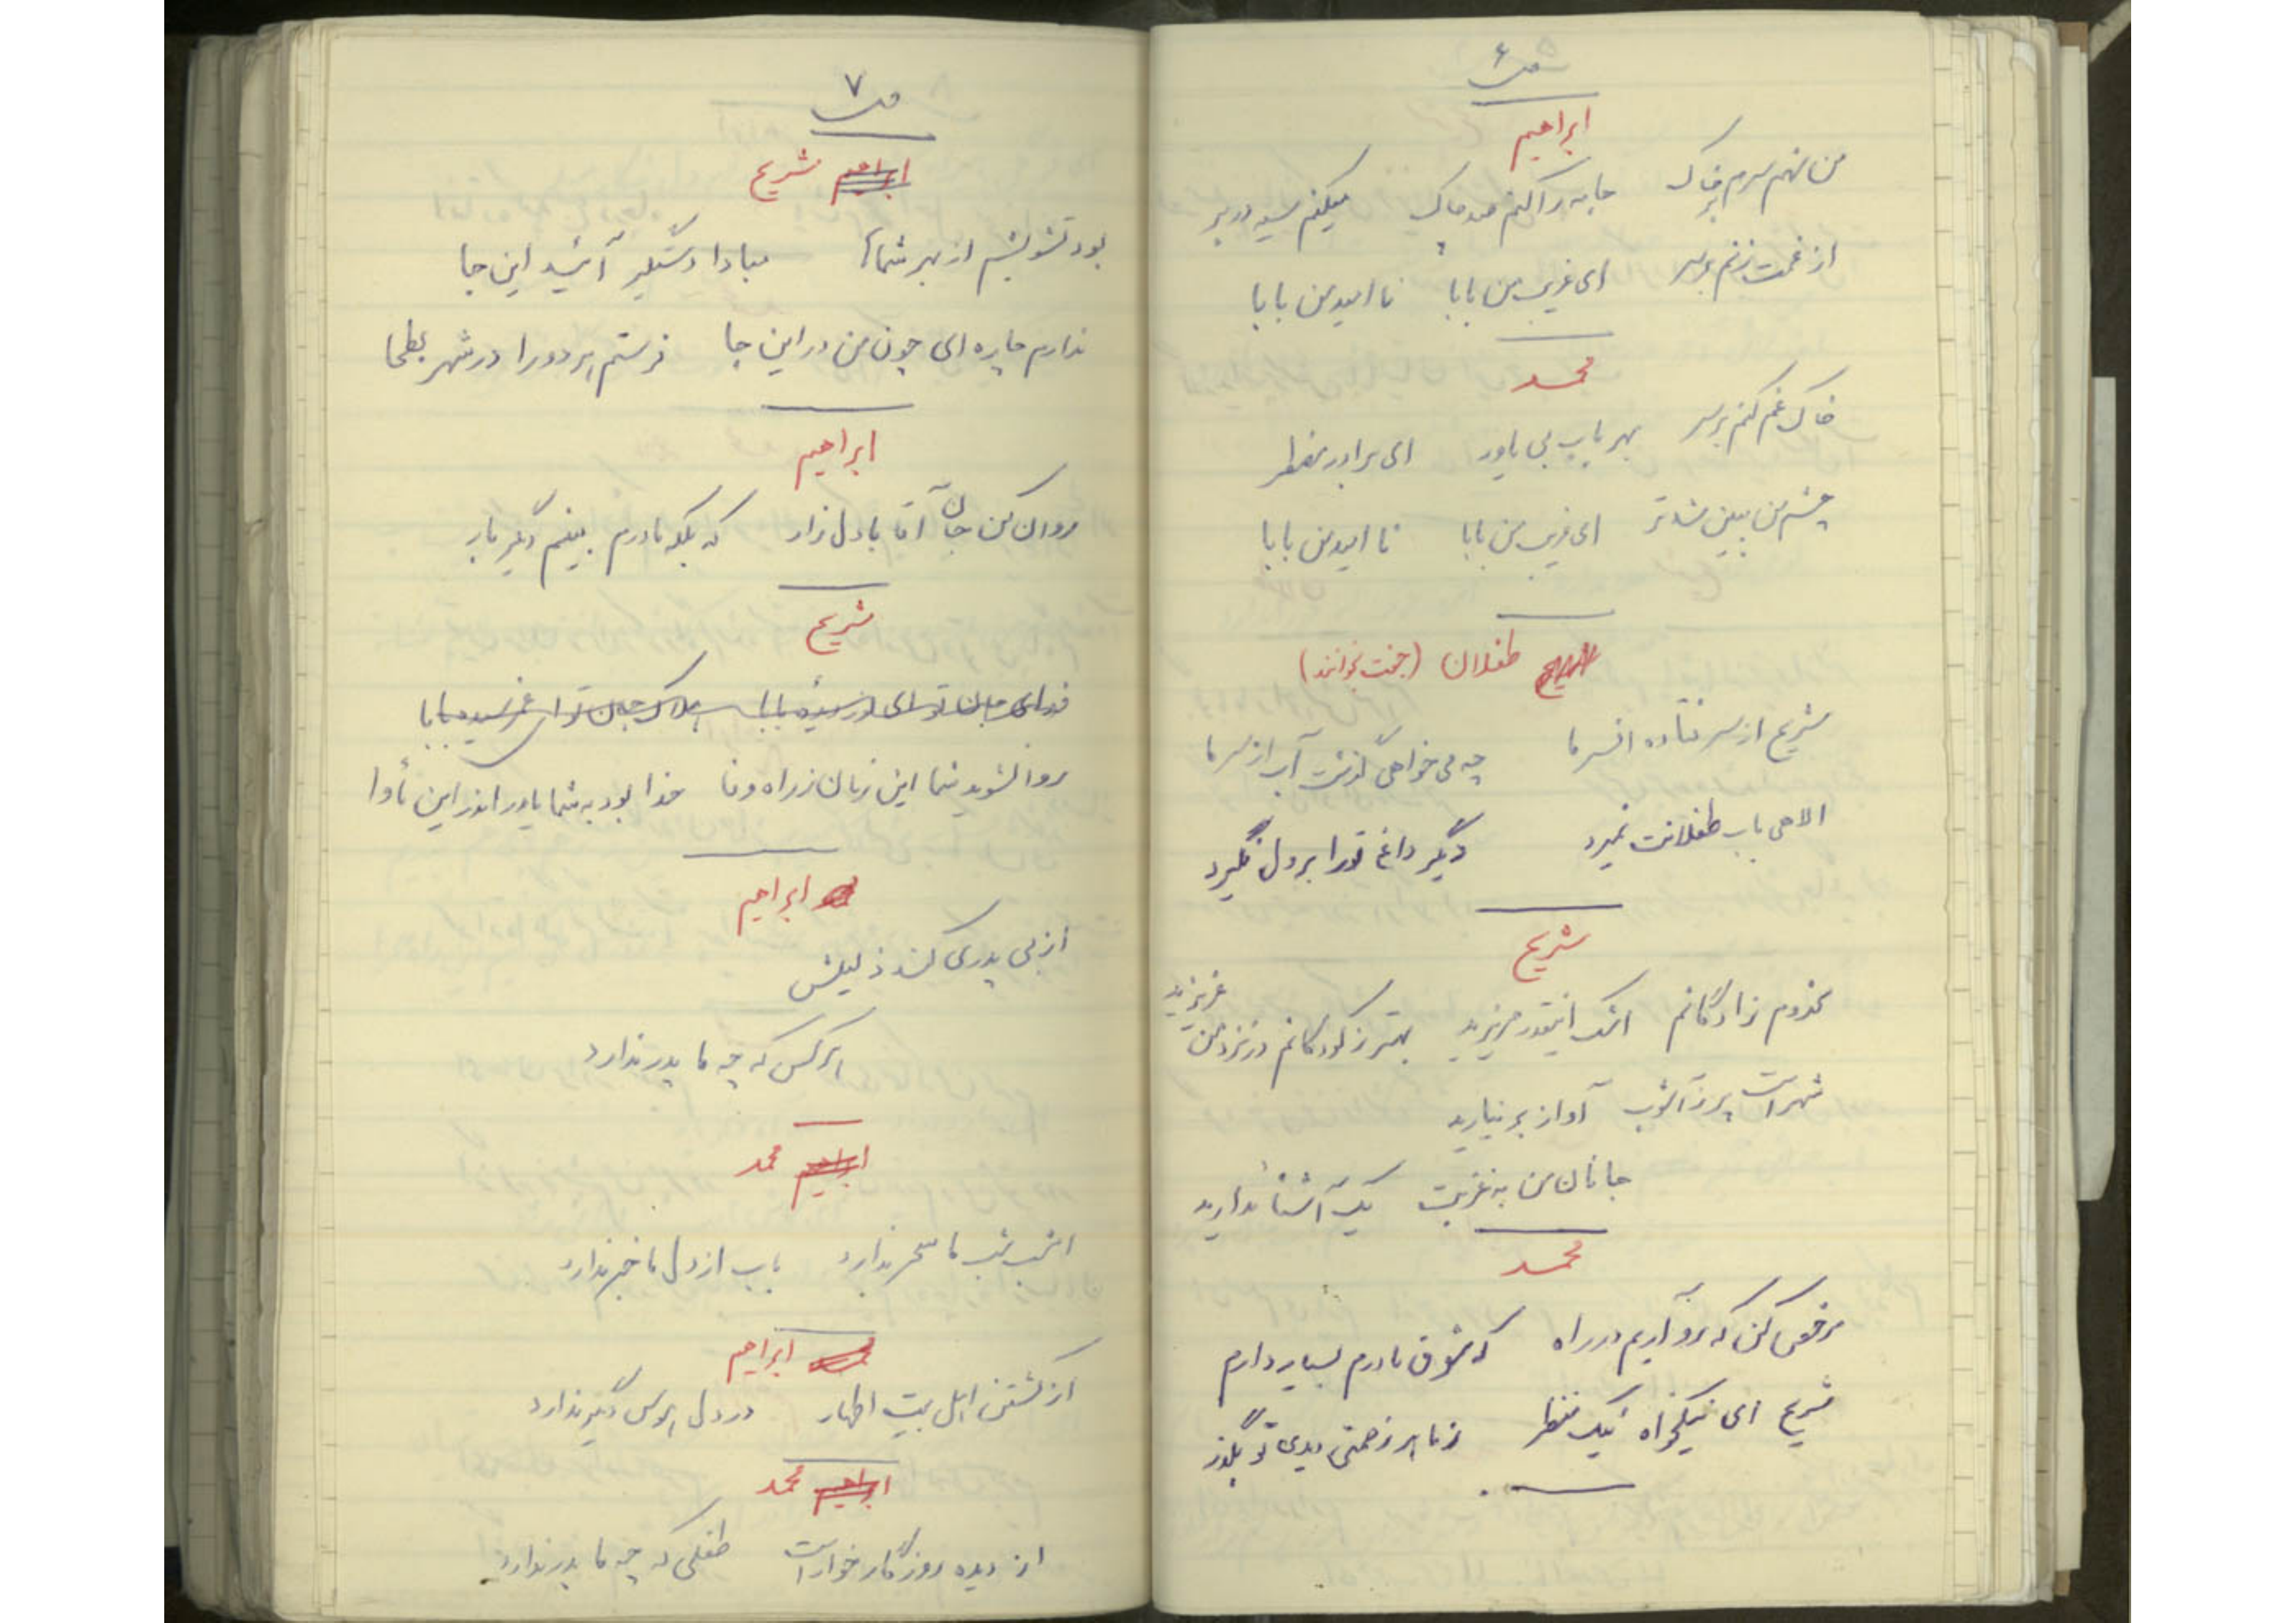 ص ۶
ابراهیم
من نهم سرم بر خاک جامه را کنم صد چاک میکنم سیه در بر
از غمت زنم بر سر ای غریب من بابا نا امید من بابا
محمد
خاک غم کنم بر سر بهر باب بی یاور ای برادر مضطر
چشم من ببین شد تر ای غریب من بابا نا امید من بابا
طفلان (جفت بخوانند)
شریح از سر فتاده افسر ما چه می خواهی گذشت آب از سر ما
الاهی باب طفلانت نمیرد دگیر داغ تو را بر دل نگیرد
شریح
مخدوم زادگانم اشک اینقدر مریزید بهتر ز کودکانم در نزد من عزیزید
شهر است پر ز آشوب آواز بر نیارید
جانان من به غربت یک آشنا ندارید
محمد
مرخص کن که رو آریم در راه که شوق مادرم بسیار دارم
شریح ای نیکخواه نیک منظر ز ما هر زحمتی دیدی تو بگذر
ص ۷
ابراهیم شریح
بود تشویشم از بهر شماها مبادا دستگیر آئید این جا
ندارم چاره ای چون من در این جا فرستم هر دو را در شهر بطحا
ابراهیم
روان کن جان آقا با دل زار که بلکه مادرم بینم دگیر بار
شریح
فدای جان تو ای نور سیده بابا هلاک جان تو ای غم رسیده بابا
روا نشوید شما این زمان ز راه وفا خدا بود به شما یاور اندر این مأوا
ابراهیم
از بی پدری کشند ذلیلش
هر کس که چه ما پدر ندارد
ابراهیم محمد
امشب شب ما سحر ندارد باب از دل ما خبر ندارد
ابراهیم
از کشتن اهل بیت اطهار در دل هوس دگیر ندارد
ابراهیم محمد
از دیده روزگار خوار است طفلی که چه ما پدر ندارد